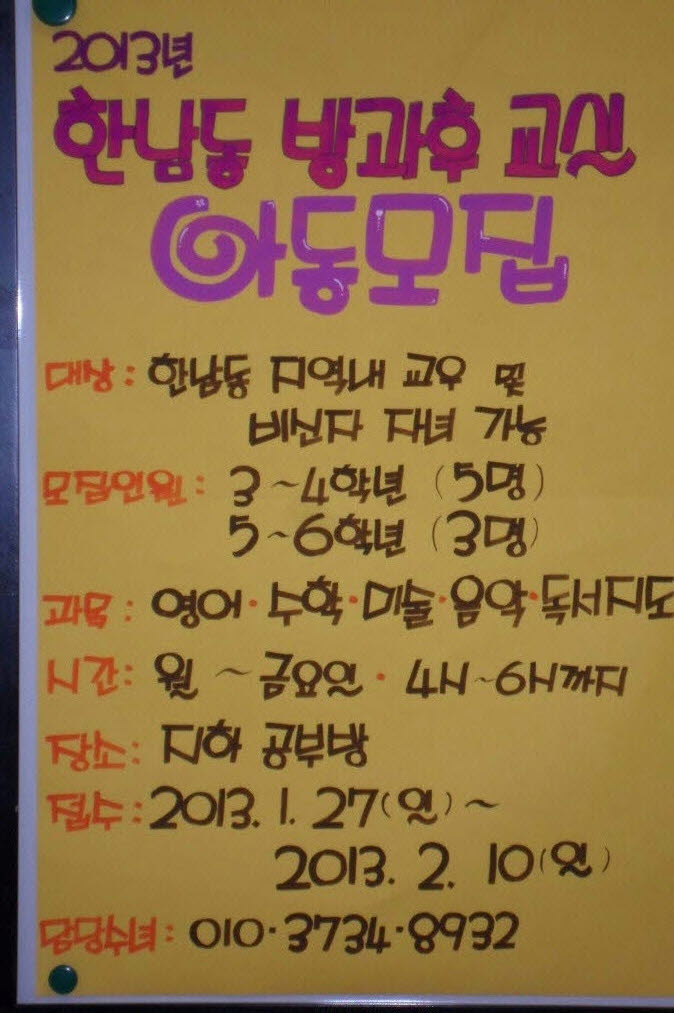 2013년
한남동 방과후 교실
아동모집
대상: 한남동 지역내 교우 및
비신자 자녀 가능
모집인원: 3~4학년 (5명)
5~6학년 (3명)
과목: 영어·수학·미술·음악·독서지도
시간: 월 ~ 금요일 · 4시~6시까지
장소: 지하 공부방
접수: 2013. 1. 27(일) ~
2013. 2. 10(일)
담당수녀: 010·3734·8932